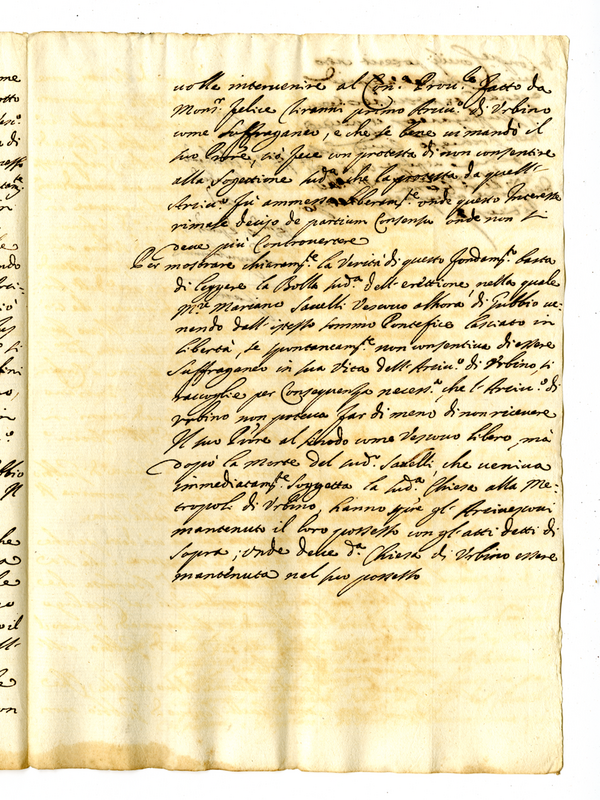 uolle interuenire al Con: Prou:le fatto da
Mons.r felice Tiranni primo Arciu.o di Vrbino
come suffraganeo, e che se bene ui mandò il
suo Prõre, ciò fece con protesta di non consentire
alla Sogettione sud.a che la protesta da quell'
Arciu.o fu ammessa liberam.te onde questo Interesse
rimase deciso de partium Consensu onde non si
deue più Controuertere
Per mostrare chiaram.te la Verità di questo fondam.to basta
di leggere la Bolla sud.a dell'erettione nella quale
M.r Mariano Sauelli Vescouo allhora di Gubbio ue-
nendo dall'istesso sommo Pontefice lasciato in
libertà, se spontaneam.te non consentiua di essere
Suffraganeo in sua Vita dell'Arciu.o di Vrbino si
raccoglie per Conseguenza necess.a che l'Arciu.o di
Vrbino non poteua far di meno di non riceuere
Il suo Prõre al sinodo come Vescouo libero, mà
dopò la morte del sud.o Sauelli, che ueniua
immediatam.te soggetta la sud.a Chiesa alla Me-
tropoli di Vrbino, hanno gl'Arciuescoui
mantenuto il loro possesso con gl'atti detti di
sopra; onde deue d.a Chiesa di Vrbino essere
mantenuta nel suo possesso